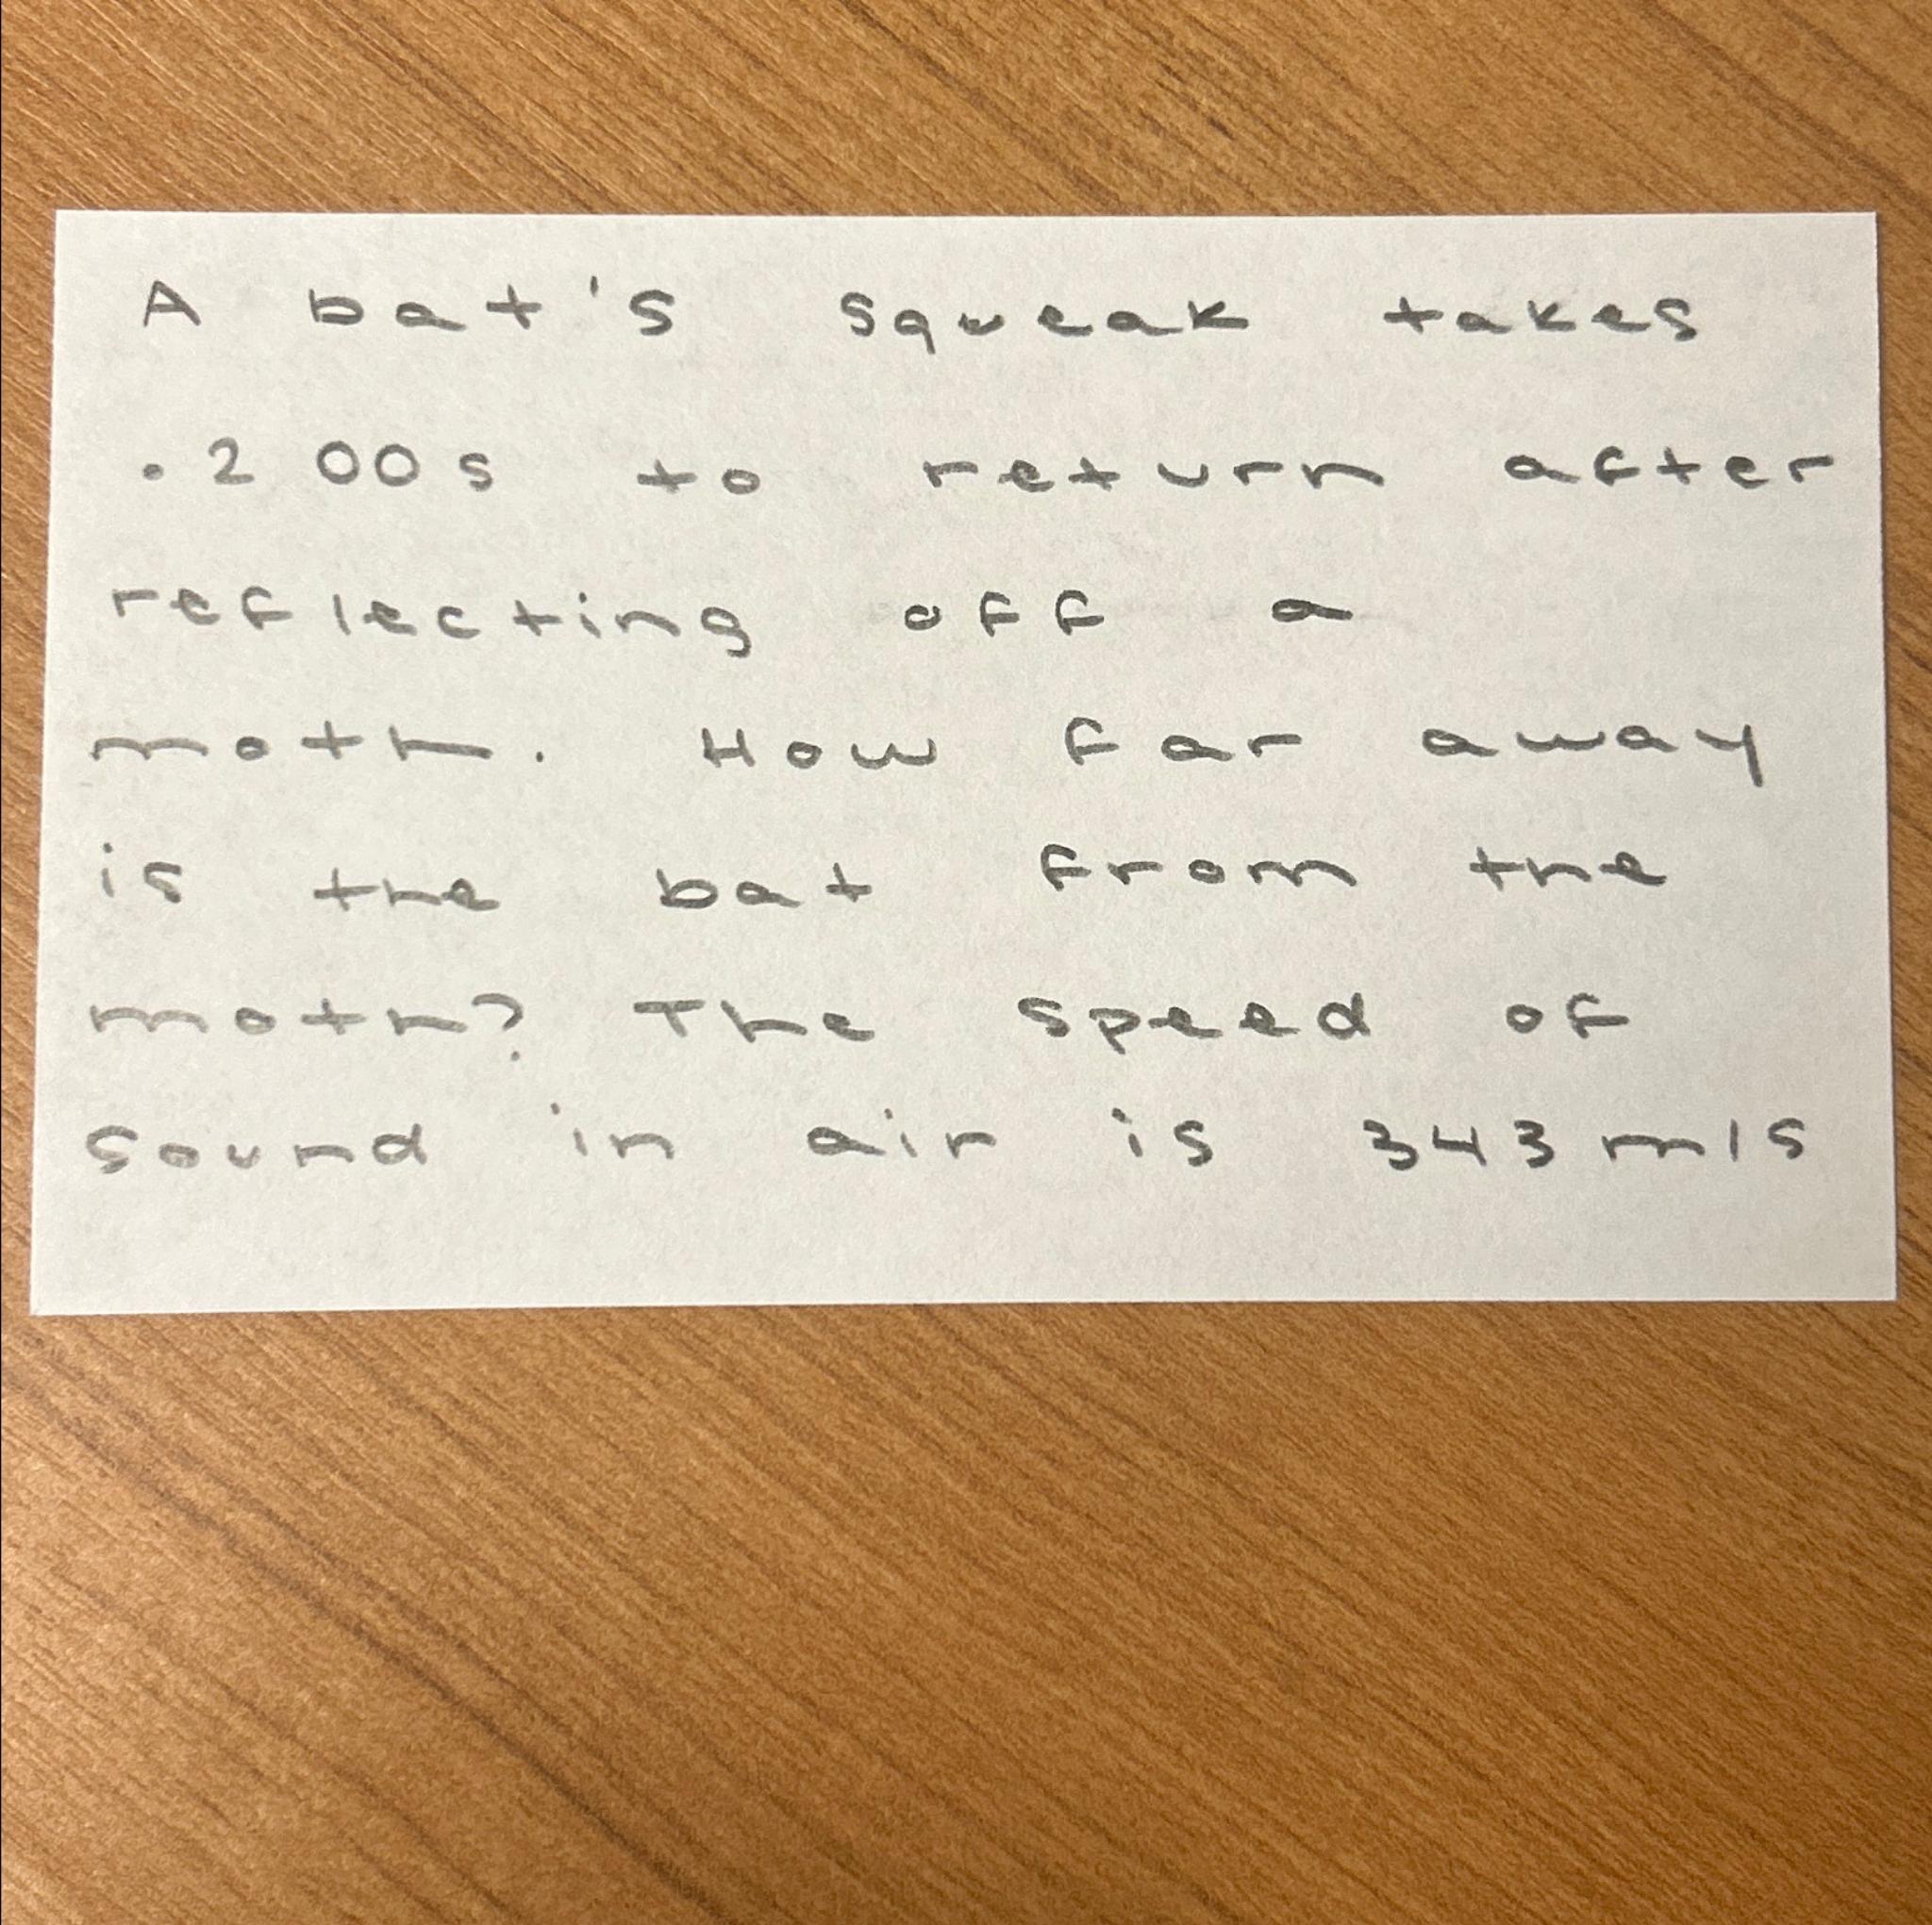 A bat's squeak takes
.200s to return after
reflecting off a
moth. How far away
is the bat from the
moth? The speed of
sound in air is 343 m/s